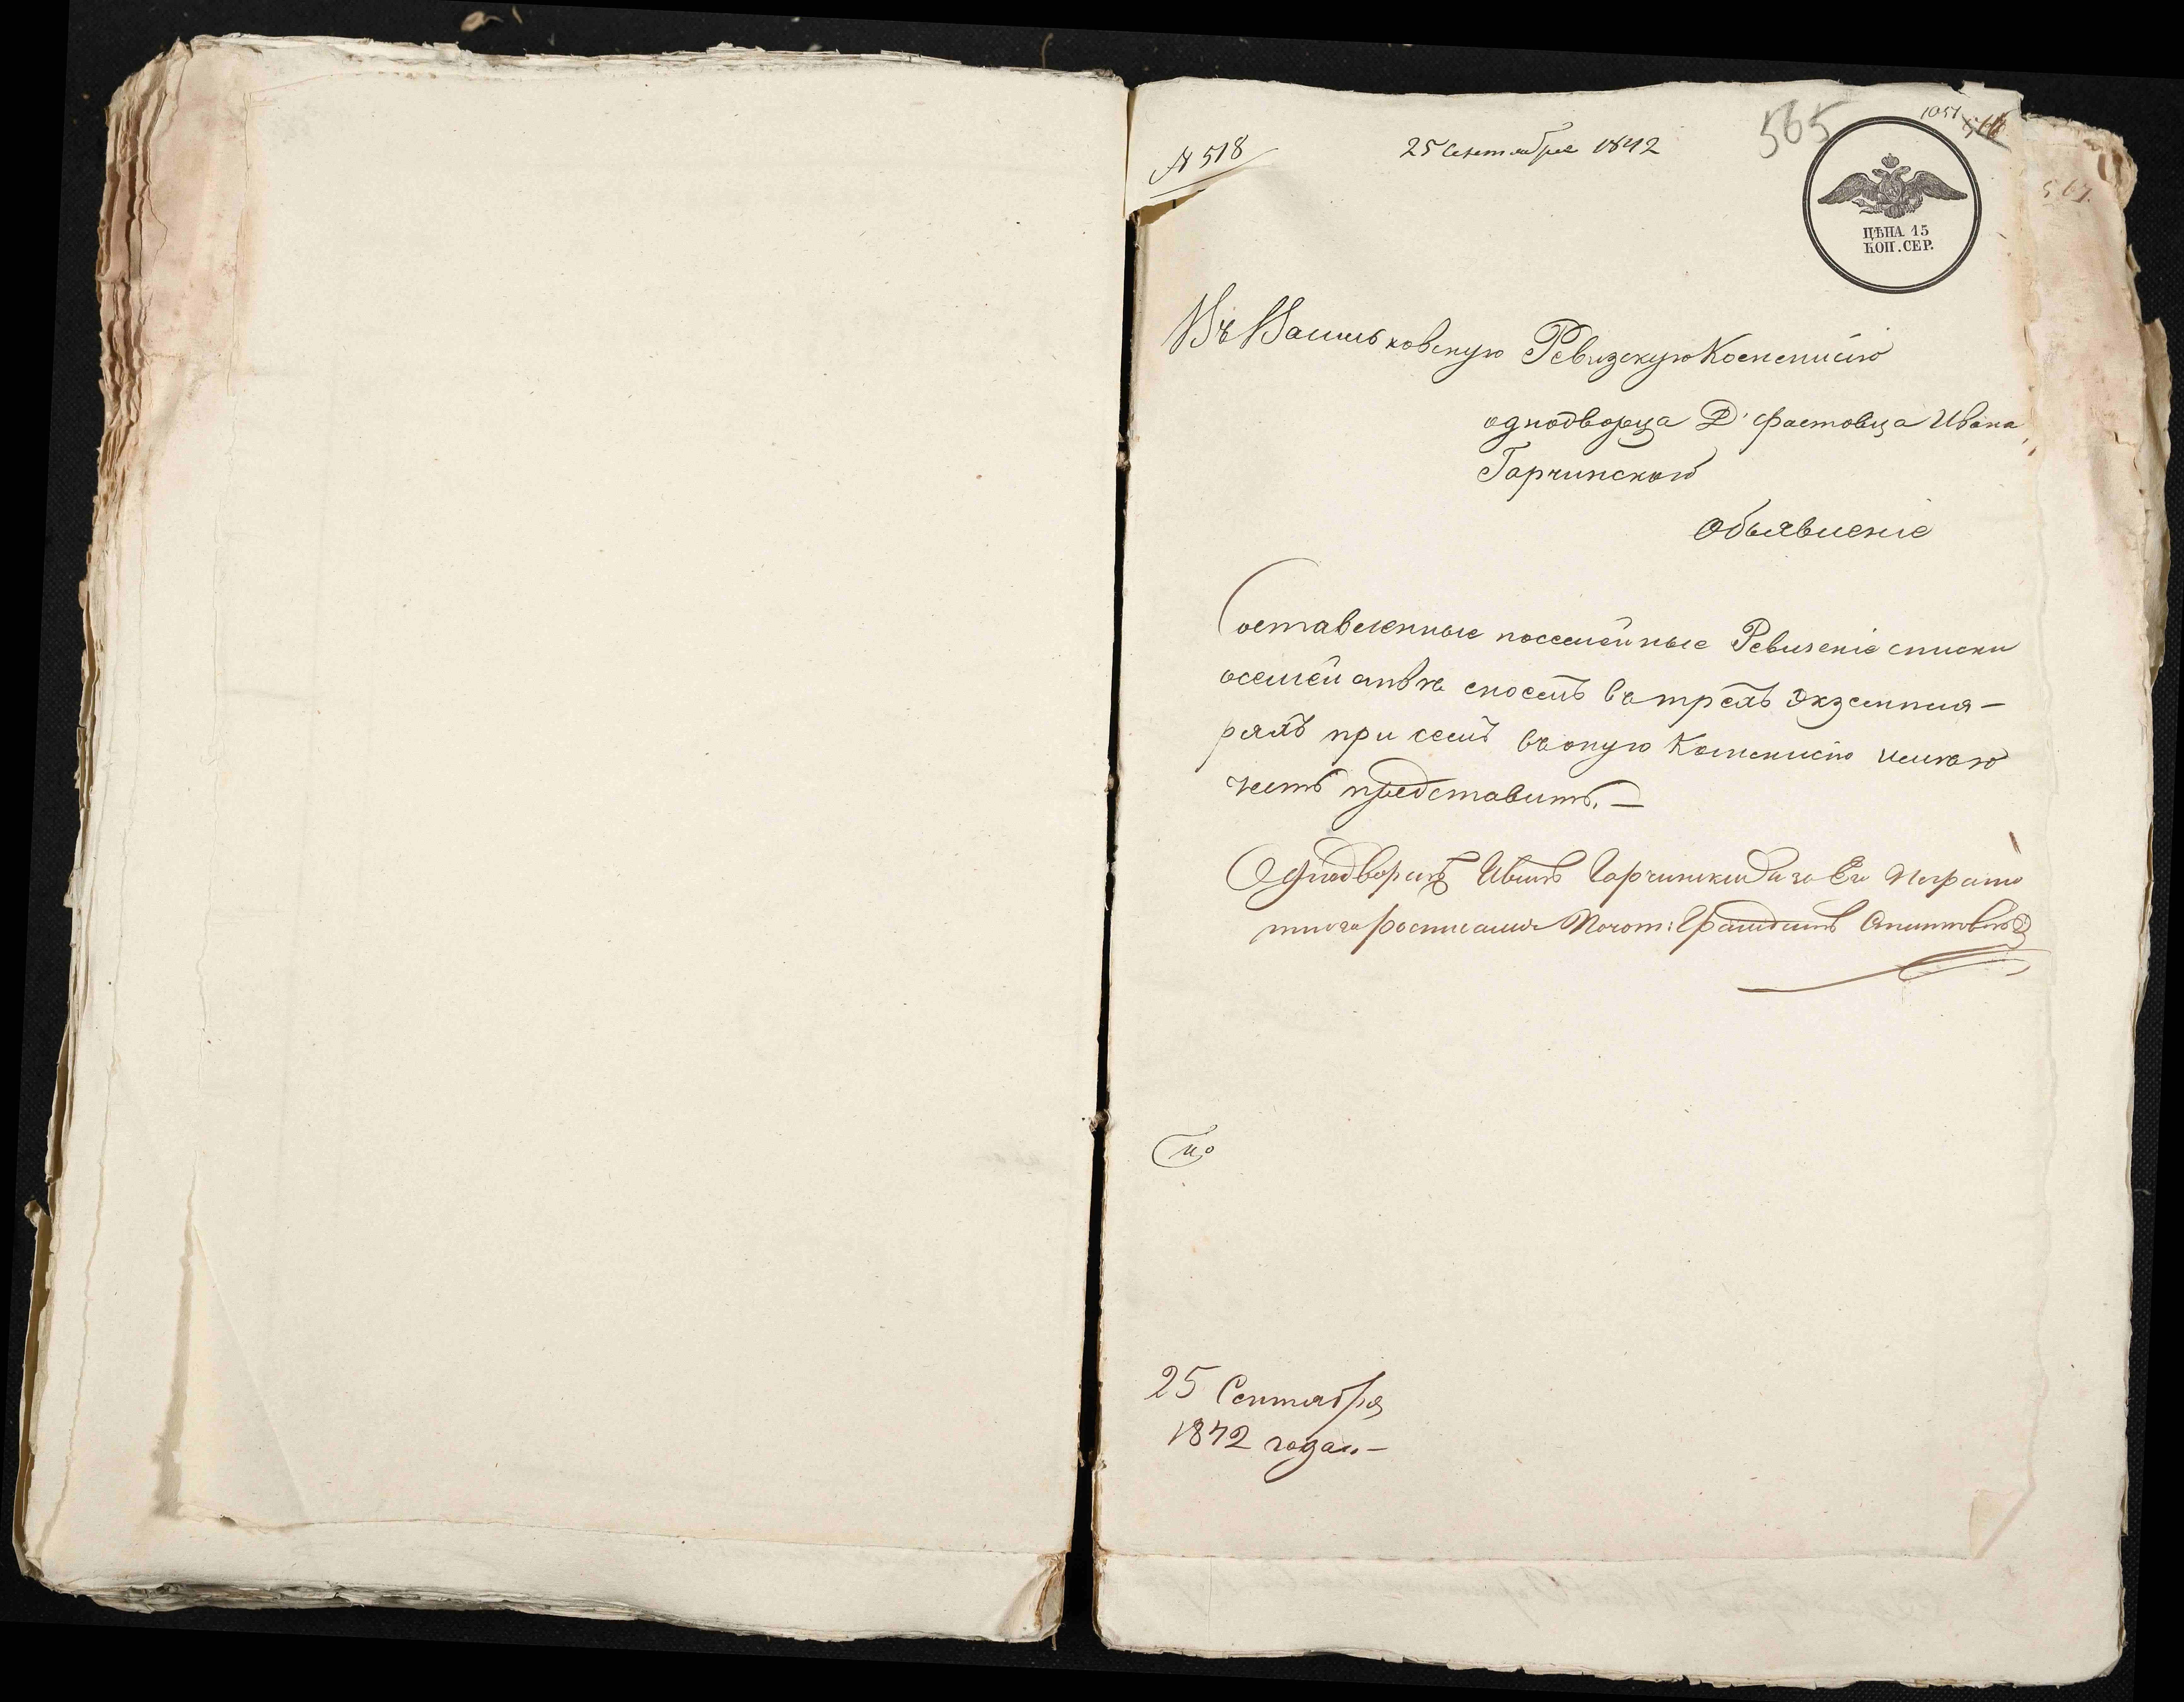 № 518
25 Сентября 1842
565
1051
567.
ЦѢНА 15
КОП. СЕР.
Въ Васильковскую Ревизскую Коммисію
однодворца Д. Фастовца Ивана
Гарчинского
Объявленіе
Составленные посемейные Ревизскіе списки
осемействѣ своемъ въ трехъ Экземпля-
рахъ при семъ въ оную Коммисію имѣю
честь представить. —
Однодворецъ Иванъ Гарчинский а за Его Неграмо
тного росписался Почот: Гражданинъ
25 Сентября
1842 года. —